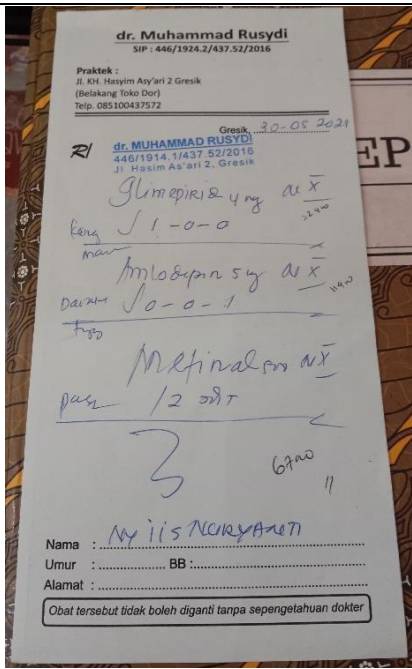 dr. Muhammad Rusydi
SIP : 446/1924.2/437.52/2016
Praktek :
Jl. KH. Hasyim Asy'ari 2 Gresik
(Belakang Toko Dor)
Telp. 085100437572
Gresik, 30-05 2021
R/
dr. MUHAMMAD RUSYDI
446/1914.1/437.52/2016
Jl Hasim As'ari 2, Gresik
EP
Glimepirid 4 mg no X
∫ 1-0-0
Amlodipin 5 mg no X
∫ 0-0-1
Mefinal 500 no X
/2
6700
Nama : Ny iis
Umur : BB :
Alamat :
Obat tersebut tidak boleh diganti tanpa sepengetahuan dokter